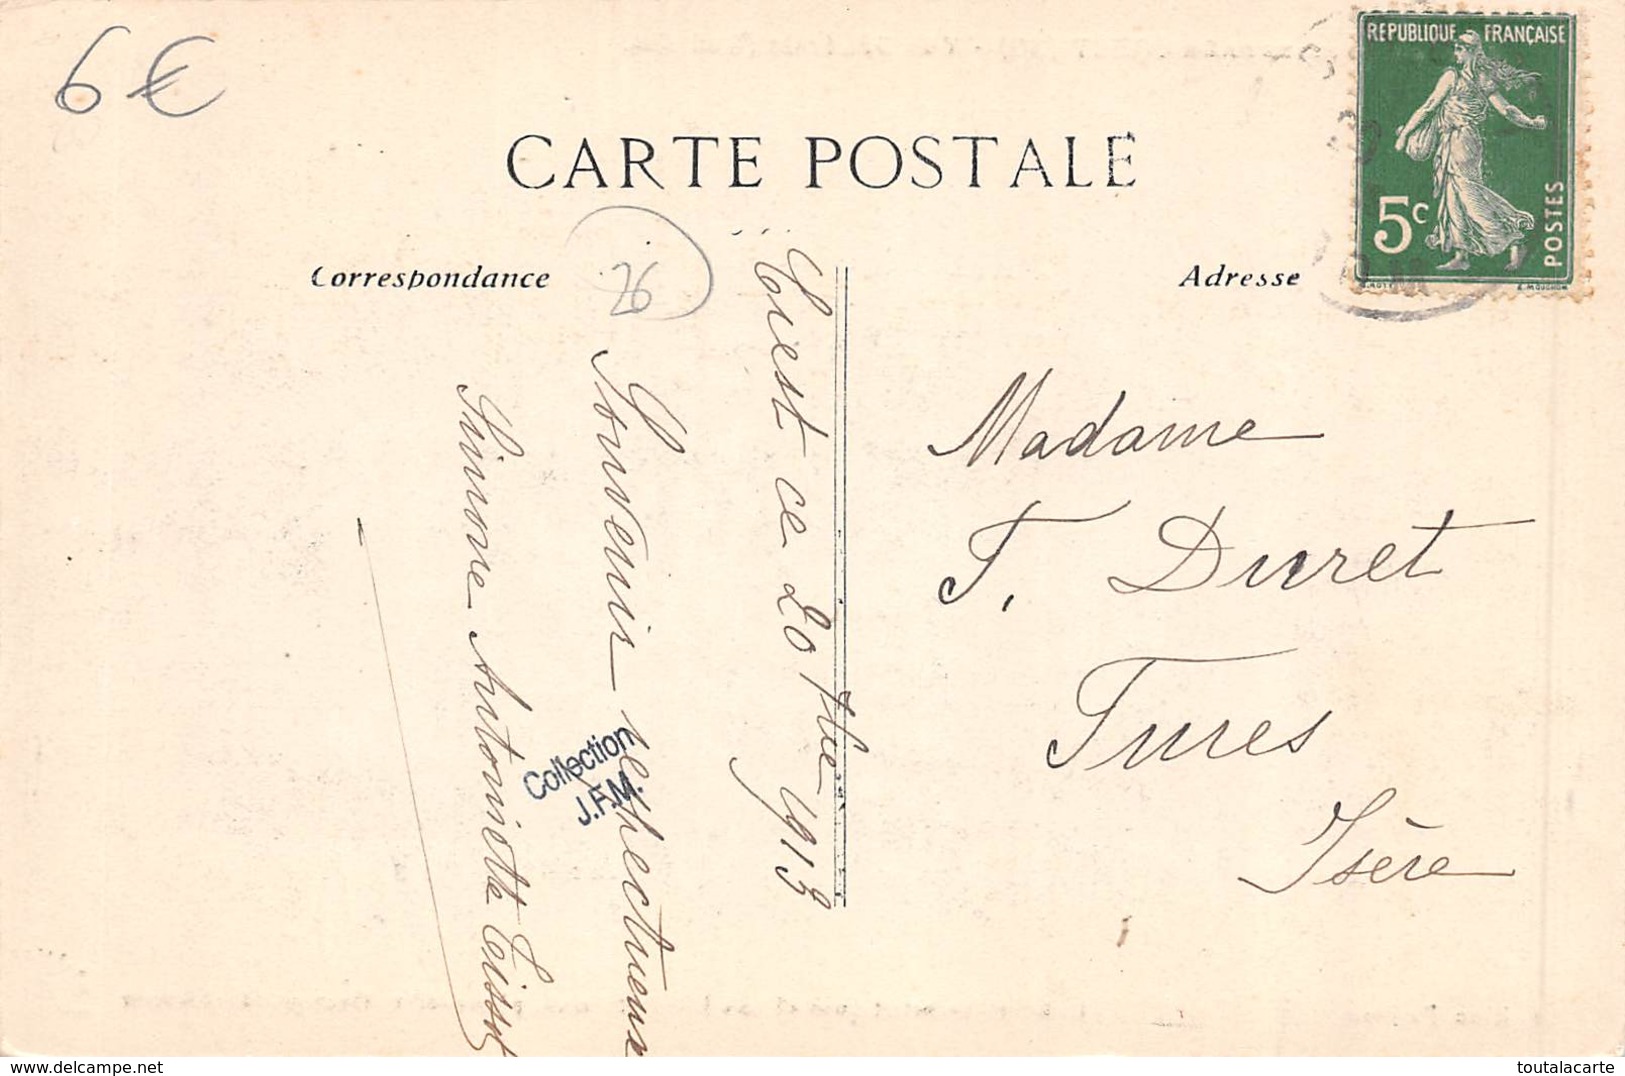 6 €
REPUBLIQUE FRANÇAISE
5c
POSTES
E. MOUCHON
CARTE POSTALE
Correspondance
Adresse
26
ce 20 1913
Souvenir respectueux
Simone Antoinette Teissot
Collection
J.F.M.
Madame
F. Duret
Tures
Isère
delcampe.net
toutalacarte